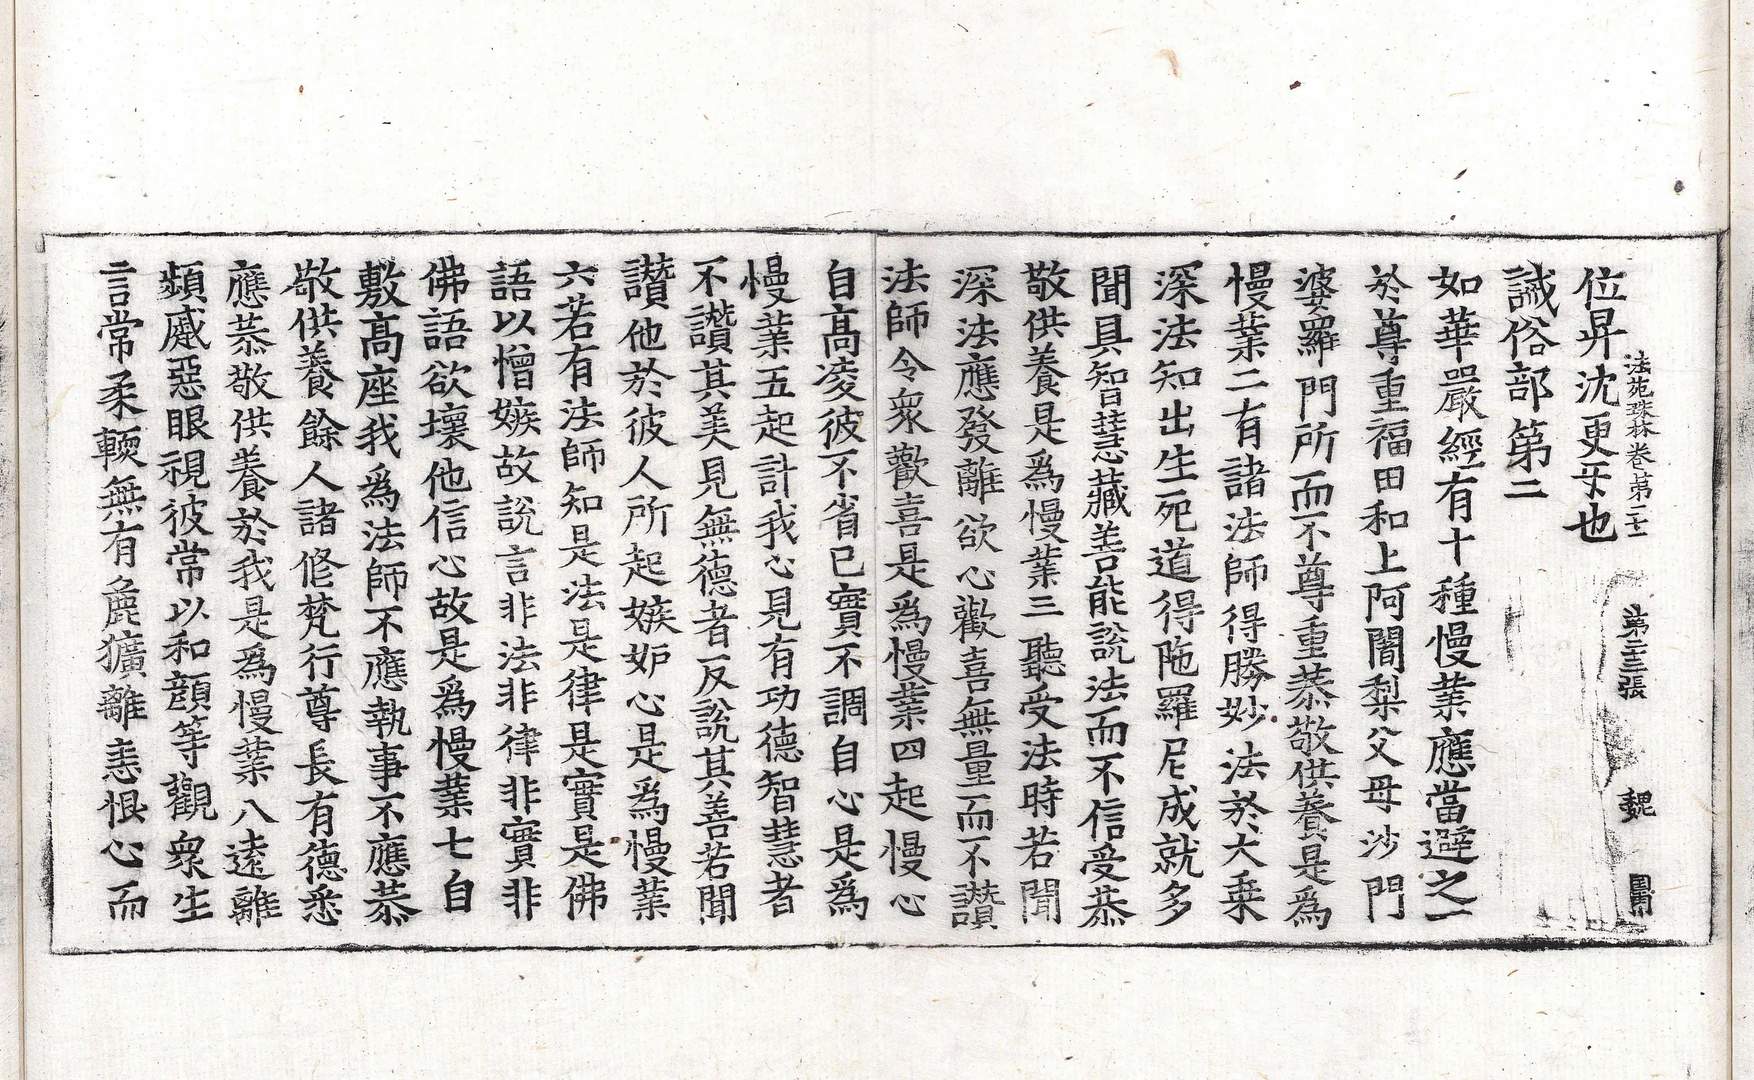 法苑珠林卷第　第二十三張　魏
位昇沈更㸦也
誡俗部第二
如華嚴經有十種慢業應當避之一
於尊重福田和上阿闍梨父母沙門
婆羅門所而不尊重恭敬供養是爲
慢業二有諸法師得勝妙法於大乗
深法知出生死道得陁羅尼成就多
聞具智慧藏善能說法而不信受恭
敬供養是爲慢業三聽受法時若聞
深法應發離欲心歡喜無量而不讚
法師令衆歡喜是爲慢業四起慢心
自高凌彼不省已實不調自心是爲
慢業五起計我心見有功德智慧者
不讚其美見無德者反說其善若聞
讚他於彼人所起嫉妒心是爲慢業
六若有法師知是法是律是實是佛
語以憎嫉故說言非法非律非實非
佛語欲壞他信心故是爲慢業七自
敷高座我爲法師不應執事不應恭
敬供養餘人諸修梵行尊長有德悉
應恭敬供養於我是爲慢業八遠離
頻蹙惡眼視彼常以和顔等觀衆生
言常柔輭無有麁獷離恚恨心而